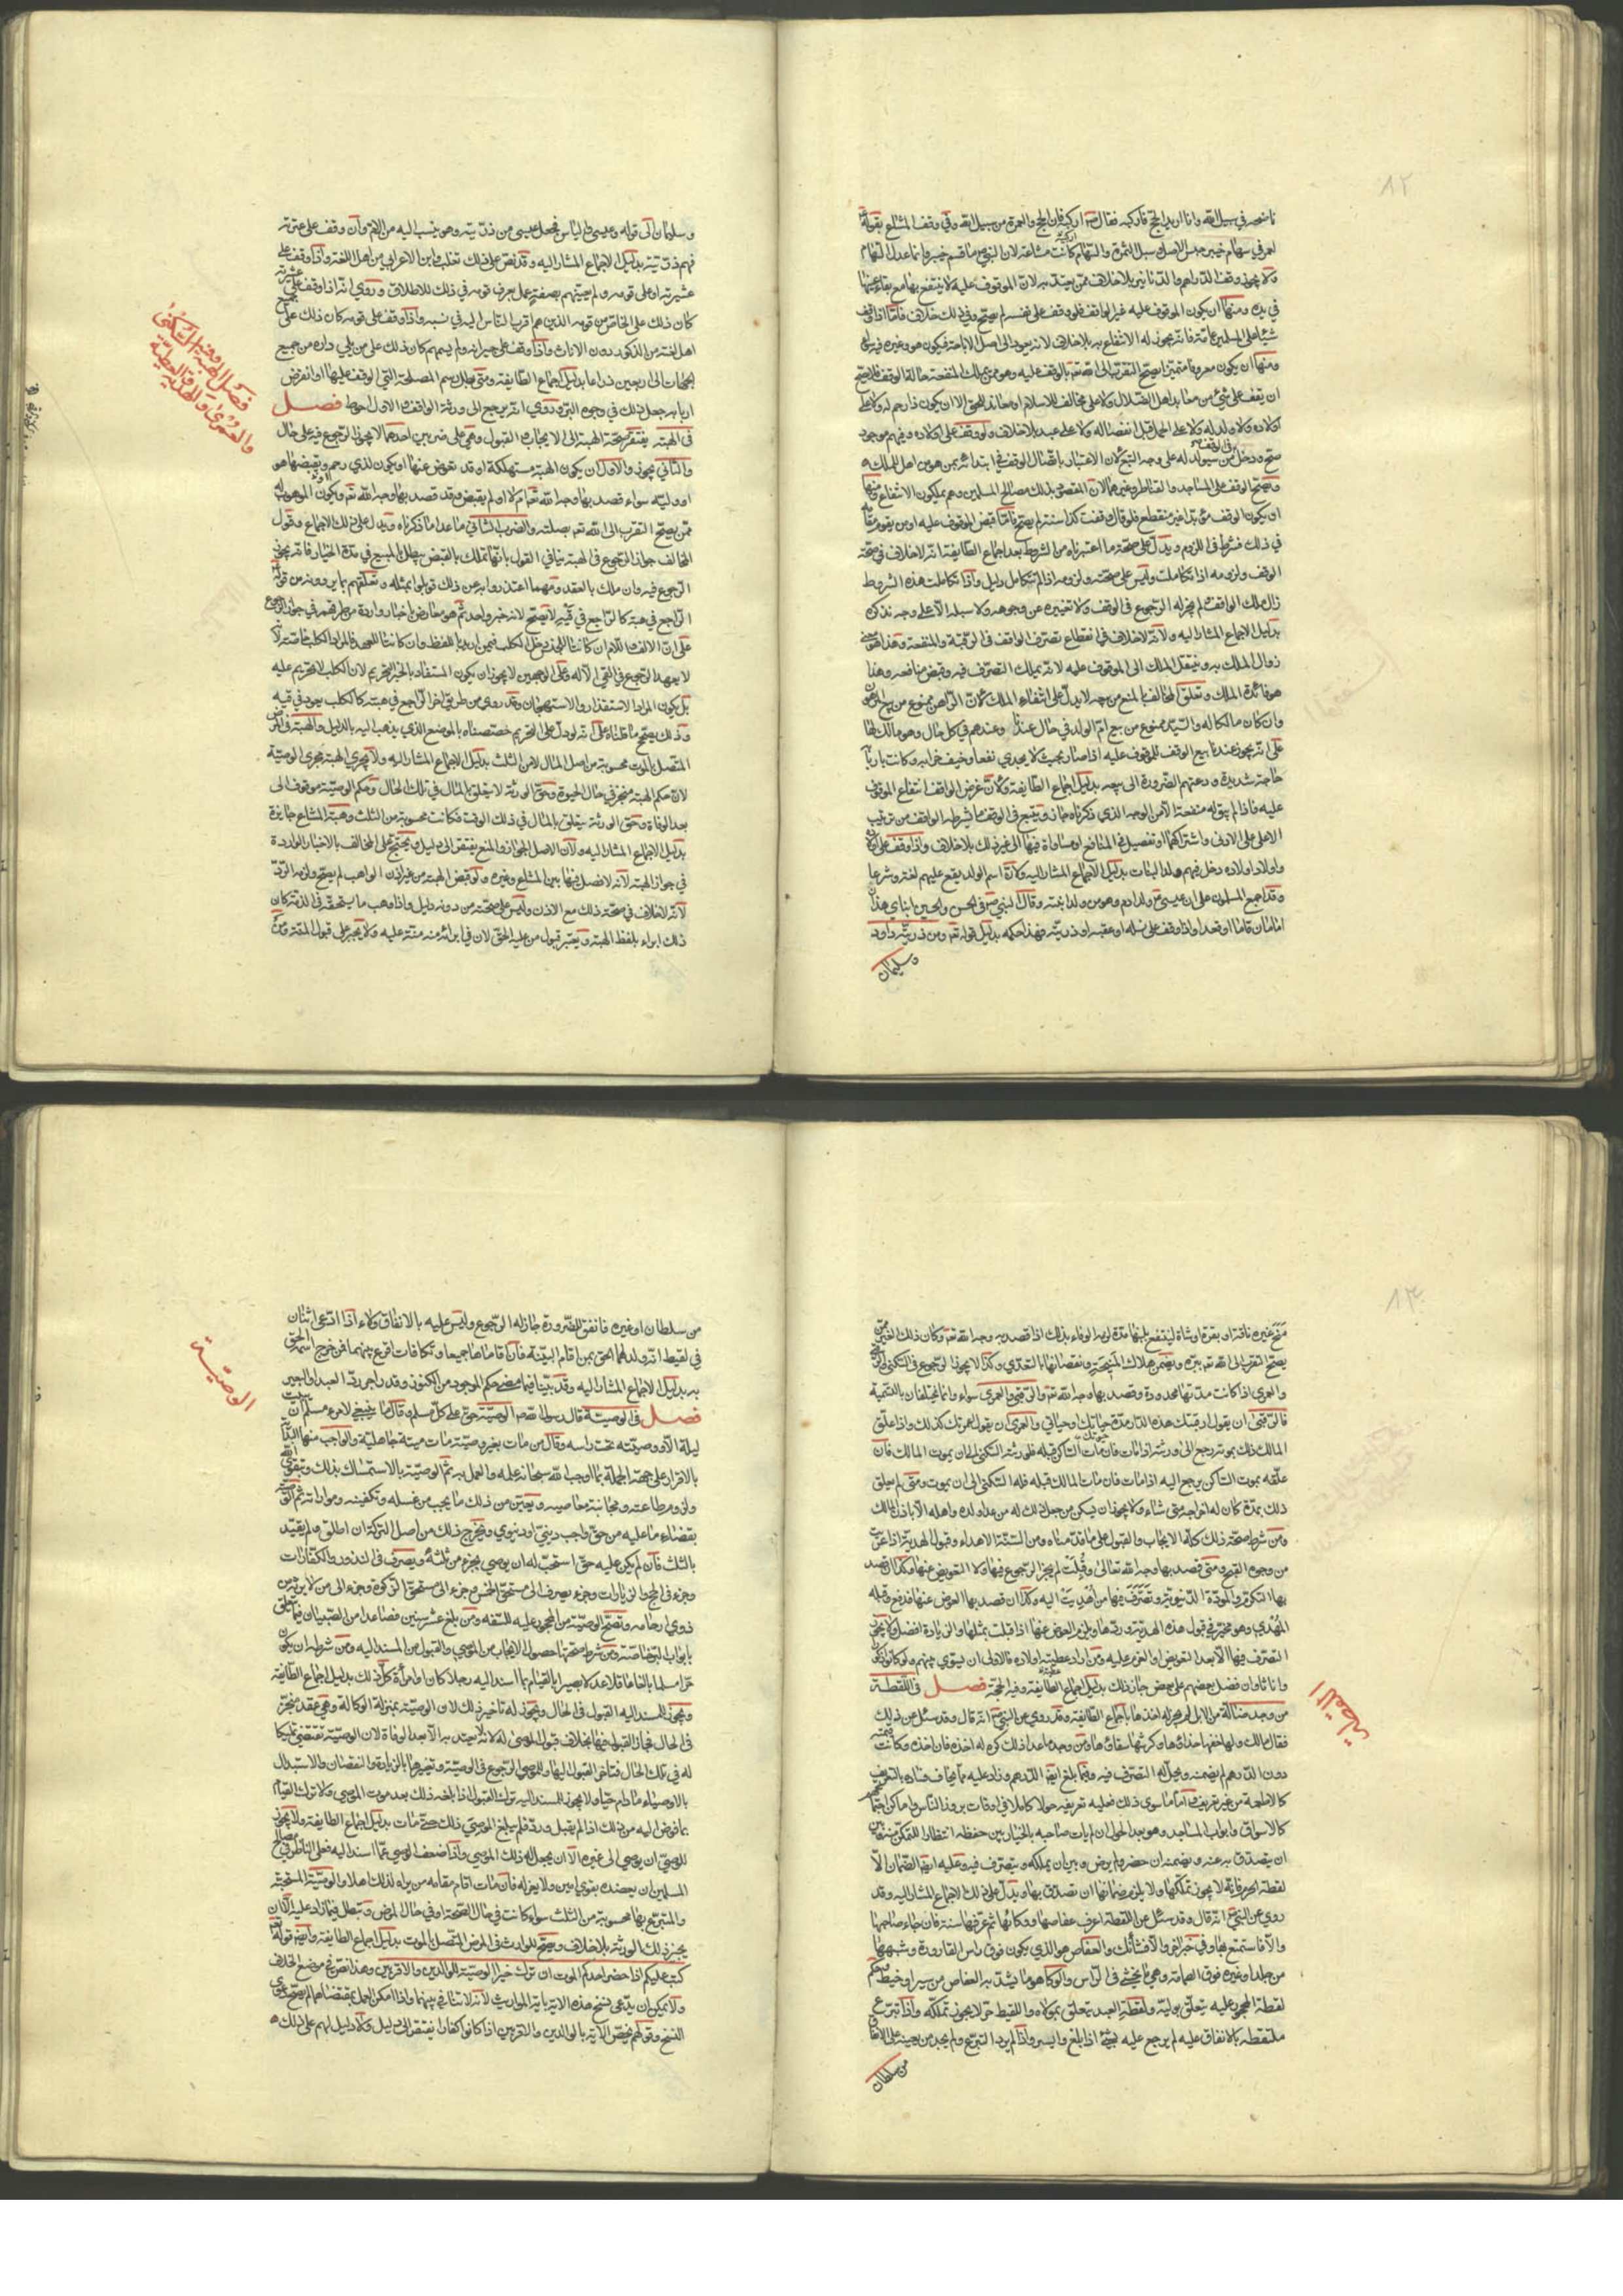 ٨٢
ناضحه في سبيل الله وانا اريد الحج فاركبه فقال اركبه فان الحج والعمرة من سبيل الله وفي وقف المشاع بقوله
لعمر في سهام خيبر حبس الاصل وسبل الثمرة والسهام كانت مشاعة لان النبي ما قسم خيبر وانما عدل السهام
ولا يجوز وقف الدراهم والدنانير بلا خلاف ممن يعتد به لان الموقوف عليه لا ينتفع بها مع بقاء عينها
في يده ومنها ان يكون الموقوف عليه غير الواقف فلو وقف على نفسه لم يصح وفي ذلك خلاف فاما اذا وقف
شيئا على المسلمين عامة فانه يجوز له الانتفاع به بلا خلاف لانه يعود الى اصل الاباحة فيكون هو وغيره فيه سواء
ومنها ان يكون معروفا متميزا يصح التقرب الى الله تعه بالوقف عليه وهو ممن يملك المنفعة حالة الوقف فلا يصح
ان يقف على شئ من معابد اهل الضلال ولا على مخالف للاسلام او معاند للحق الا ان يكون ذا رحم له ولا على
اولاده ولا ولد له ولا على الحمل قبل انفصاله ولا على عبد بلا خلاف ولو وقف على اولاده وفيهم موجود
صح ودخل من سيولد له على وجه التبع لان الاعتبار باتصال الوقف في ابتدائه بمن هو من اهل الملك
ويصح الوقف على المساجد والقناطر وغيرهما لان المقصود بذلك مصالح المسلمين وهم يملكون الانتفاع ومنها
ان يكون الوقف مؤبدا غير منقطع فلو قال وقفت كذا سنة لم يصح فاما قبض الموقوف عليه او من يقوم مقامه
في ذلك فشرط في اللزوم ويدل على صحة ما اعتبرناه من الشروط بعد اجماع الطايفة انه لا خلاف في صحة
الوقف ولزومه اذا تكاملت وليس على صحته ولزومه اذا لم تتكامل دليل واذا تكاملت هذه الشروط
زال ملك الواقف ولم يجز له الرجوع في الوقف ولا تغييره عن وجوهه ولا سبله الا على وجه نذكره
بدليل الاجماع المشار اليه ولانه لا خلاف في انقطاع تصرف الواقف في الرقبة والمنفعة وهذا هو معنى
زوال الملك به وينتقل الملك الى الموقوف عليه لانه يملك التصرف فيه وقبض منافعه وهذا
هو فائدة الملك وتعلق المخالف بالمنع من بيعه لا يدل على انتفاء الملك لان الراهن ممنوع من بيع الرهن
وان كان مالكا له والسيد ممنوع من بيع ام الولد في حال عندنا وعندهم في كل حال وهو مالك لها
على انه يجوز عندنا بيع الوقف للموقوف عليه اذا صار بحيث لا يجدي نفعا وخيف خرابه وكانت باربابه
حاجة شديدة ودعتهم الضرورة الى بيعه بدليل اجماع الطايفة ولان غرض الواقف انتفاع الموقوف
عليه فاذا لم يبق له منفعة الا من الوجه الذي ذكرناه جاز ويتبع في الوقف ما يشرطه الواقف من ترتيب
الاعلى على الادنى واشتراكهما او تفضيل في المنافع او مساواة فيها الى غير ذلك بلا خلاف واذا وقف على اولاده
واولاد اولاده دخل فيهم ولد البنات بدليل الاجماع المشار اليه ولان اسم الولد يقع عليهم لغة وشرعا
وقد اجمع المسلمون على ان عيسى ولد ادم وهو من ولد ابنته وقال النبي في الحسن والحسين ابناي هذان
امامان قاما او قعدا واذا وقف على نسله او عقبه او ذريته فهذا حكمه بدليل قوله تعه ومن ذريته داود
وسليمان
وسليمان الى قوله وعيسى والياس فجعل عيسى من ذريته وهو ينسب اليه من الام وان وقف على عترته
فهم ذريته بدليل الاجماع المشار اليه وقد نص على ذلك ثعلب وابن الاعرابي من اهل اللغة واذا وقف على
عشيرته او على قومه ولم يعينهم بصفة عمل بعرف قومه في ذلك للاطلاق وروي انه اذا وقف على عشيرته
كان ذلك على الخاص من قومه الذين هم اقرب الناس اليه في نسبه واذا وقف على قومه كان ذلك على جميع
اهل لغته من الذكور دون الاناث واذا وقف على جيرانه ولم يسمهم كان ذلك على من يلي داره من جميع
الجهات الى اربعين ذراعا بدليل اجماع الطايفة ومتى بطل رسم المصلحة التي الوقف عليها او انقرض
اربابه جعل ذلك في وجوه البر وروي انه يرجع الى ورثة الواقف والاول احوط فصل
في الهبة يفتقر صحة الهبة الى الايجاب والقبول وهي على ضربين احدهما لا يجوز الرجوع فيه على حال
والثاني يجوز والاول ان يكون الهبة مستهلكة او قد تعوض عنها او يكون لذي رحم ويقبضها هو
او وليه سواء قصد بها وجه الله تعه ام لا او لم يقبض وقد قصد بها وجه الله تعه ويكون الموهوب له
ممن يصح التقرب الى الله تعه بصلته والضرب الثاني ما عدا ما ذكرناه ويدل على ذلك الاجماع وقول
المخالف جواز الرجوع في الهبة ينافي القول بانها تملك بالقبض يبطل بالمبيع في مدة الخيار فانه يجوز
الرجوع فيه وان ملك بالعقد ومهما اعتذروا به عن ذلك قوبلوا بمثله وتعلقهم بما يروونه من قوله
الراجع في هبته كالراجع في قيئه لا يصح لانه خبر واحد ثم هو معارض باخبار واردة من طرقهم في جواز الرجوع
على ان الالف واللام ان كانتا للجنس دخل الكلب فيمن اريد باللفظ وان كانتا للعهد فالمراد الكلب خاصة لانه
لا يعهد الرجوع في القي الا له وعلى الوجهين لا يجوز ان يكون المستفاد بالخبر التحريم لان الكلب لا تحريم عليه
بل يكون المراد الاستقذار والاستهجان وقد روي من طريق اخر الراجع في هبته كالكلب يعود في قيئه
وذلك يصحح ما قلناه على انه لو دل على التحريم خصصناه بالموضع الذي يذهب اليه بالدليل والهبة في المرض
المتصل بالموت محسوبة من اصل المال لا من الثلث بدليل الاجماع المشار اليه ولا تجري الهبة مجرى الوصية
لان حكم الهبة منجز في حال الحيوة وحق الورثة لا يتعلق بالمال في تلك الحال وحكم الوصية موقوف الى
بعد الوفاة وحق الورثة يتعلق بالمال في ذلك الوقت فكانت محسوبة من الثلث وهبة المشاع جايزة
بدليل الاجماع المشار اليه ولان الاصل الجواز والمنع يفتقر الى دليل ويحتج على المخالف بالاخبار الواردة
في جواز الهبة لانه لا فصل فيها بين المشاع وغيره ولو قبض الهبة من غير اذن الواهب لم يصح ولزمه الرد
لانه لا خلاف في صحة ذلك مع الاذن وليس على صحته من دونه دليل واذا وهب ما يستحقه في الذمة كان
ذلك ابراء بلفظ الهبة ويعتبر قبول من عليه الحق لان في ابرائه منه منة عليه ولا يجبر على قبول المنة ومن
فصل الهبة
والسكنى
والعمرى
٨٣
منح غيره ناقة او بقرة او شاة لينتفع بلبنها مدة لزمه الوفاء بذلك اذا قصد به وجه الله تعه وكان ذلك الغير ممن
يصح التقرب الى الله تعه ببره ويضمن هلاك المنيحة ونقصانها بالتعدي وكذا لا يجوز الرجوع في السكنى والرقبى
والعمرى اذا كانت مدتها محدودة وقصد بها وجه الله تعه والرقبى والعمرى سواء وانما يختلفان بالتسمية
فالرقبى ان يقول ارقبتك هذه الدار مدة حياتك او حياتي والعمرى ان يقول اعمرتك كذلك واذا علق
المالك ذلك بموته رجع الى ورثته اذا مات فان مات الساكن قبله فلورثته السكنى الى ان يموت المالك فان
علقه بموت الساكن يرجع اليه اذا مات فان مات المالك قبله فله السكنى الى ان يموت ومتى لم يعلق
ذلك بمدة كان له اخراجه متى شاء ولا يجوز ان يسكن من جعل ذلك له من عدا ولده واهله الا باذن المالك
ومن شرط صحة ذلك كله الايجاب والقبول على ما قدمناه ومن السنة الاهداء وقبول الهدية اذا عرت
من وجوه القبح ومتى قصد بها وجه الله تعالى وقبلت لم يجز الرجوع فيها ولا التعويض عنها وكذا ان قصد
بها التكرم والمودة الدنيوية وتصرف فيها من اهديت اليه وكذا ان قصد بها العوض عنها فدفع وقبله
المهدي وهو مخير في قبول هذه الهدية وردها ويلزم العوض عنها اذا قبلت بمثلها والزيادة افضل ولا يجوز
التصرف فيها الا بعد التعويض او العزم عليه ومن اراد عطية اولاده فالاولى ان يسوي بينهم ولو كانوا ذكورا
واناثا وان فضل بعضهم على بعض جاز ذلك بدليل اجماع الطايفة وفيه الحجة فصل في اللقطة
من وجد ضالة من الابل لم يجز له اخذها باجماع الطايفة وقد روي عن النبي انه قال وقد سئل عن ذلك
فقال مالك ولها خفها حذاؤها وكرشها سقاؤها ومن وجد ما عدا ذلك كره له اخذه فان اخذه وكانت قيمته
دون الدرهم لم يضمنه ويحل له التصرف فيه وفيما بلغ الدرهم وزاد عليه مما يخاف فساده بالتعريف
كالاطعمة من غير تعريف فاما ما سوى ذلك فعليه تعريفه حولا كاملا في اوقات بروز الناس واماكن اجتماعهم
كالاسواق وابواب المساجد وهو بعد الحول ان لم يات صاحبه بالخيار بين حفظه انتظارا للتمكن منه وبين
ان يتصدق به عنه ويضمنه ان حضر ولم يرض وبين ان يتملكه ويتصرف فيه وعليه ايضا الضمان الا
لقطة الحرم فانه لا يجوز تملكها ولا يلزم ضمانها ان تصدق بها ويدل على ذلك الاجماع المشار اليه وقد
روي عن النبي انه قال وقد سئل عن اللقطة اعرف عفاصها ووكائها ثم عرفها سنة فان جاء صاحبها
والا فاستمتع بها وفي خبر اخر والا فشأنك والعفاص هو الذي يكون فوق راس القارورة وشبهها
من جلد او غيره فوق الصمامة وهي ما يحشى في الراس والوكا هو ما يشد به العفاص من سير او خيط وحكم
لقطة المحجور عليه يتعلق بوليه ولقطة العبد يتعلق بمولاه واللقيط حر لا يجوز تملكه واذا تبرع
ملتقطه بالانفاق عليه لم يرجع عليه بشئ اذا بلغ وايسر واذا لم يرد التبرع ولم يجد من يعينه على الانفاق
من سلطان
اللقطة
من سلطان او غيره فانفق للضرورة جاز له الرجوع وليس عليه بالانفاق ولاء اذا ادعى اثنان
في لقيط انه ولد لهما الحق بمن اقام البينة فان اقاماها جميعا وتكافات اقرع بينهما فمن خرج اسمه الحق
به بدليل الاجماع المشار اليه وقد بينا فيما مضى حكم الموجود من الكنوز وقدر اجر رد العبد والبعير
فصل في الوصية قال رسول الله الوصية حق على كل مسلم وقال ما ينبغي لامرء مسلم ان يبيت
ليلة الا ووصيته تحت راسه وقال من مات بغير وصية مات ميتة جاهلية والواجب منها البداية
بالاقرار على جهة الجملة بما اوجب الله سبحانه عليه والعمل به ثم الوصية بالاستمساك بذلك وبتقوى الله
ولزوم طاعته ومجانبة معاصيه ويعين من ذلك ما يجب من غسله وتكفينه ومواراته ثم الوصية
بقضاء ما عليه من حق واجب ديني او دنيوي ويخرج ذلك من اصل التركة ان اطلق ولم يقيد
بالثلث فان لم يكن عليه حق استحب له ان يوصي بجزء من ثلثه ويصرف في النذور والكفارات
وجزء في الحج والزيارات وجزء يصرف الى مستحق الخمس وجزء الى مستحق الزكوة وجزء الى من لا يرثه من
ذوي ارحامه وتصح الوصية من المحجور عليه للسفه ومن بلغ عشر سنين فصاعدا من الصبيان فيما يتعلق
بابواب البر خاصة ومن شرط صحتها حصول الايجاب من الموصي والقبول من المسند اليه ومن شرطه ان يكون
حرا مسلما بالغا عاقلا عدلا بصيرا بالقيام بما اسند اليه رجلا كان او امرأة كل ذلك بدليل اجماع الطايفة
ويجوز للمسند اليه القبول في الحال ويجوز له تاخير ذلك لان الوصية بمنزلة الوكالة وهي عقد منجز
في الحال فجاز القبول فيها بخلاف قبول الموصى له لانه لا يعتد به الا بعد الوفاة لان الوصية تقتضي تمليكا
له في تلك الحال فتاخر القبول اليها وللموصي الرجوع في الوصية وتغييرها بالزيادة والنقصان والاستبدال
بالاوصياء ما دام حيا ولا يجوز للمسند اليه ترك القبول اذا بلغه ذلك بعد موت الموصي ولا ترك القيام
بما فوض اليه من ذلك اذا لم يقبل ورد فلم يبلغ الموصي ذلك حتى مات بدليل اجماع الطايفة ولا يجوز
للوصي ان يوصي الى غيره الا ان يجعل له ذلك الموصي واذا ضعف الوصي عما اسند اليه فعلى الناظر في مصالح
المسلمين ان يعضده بقوي امين ولا يعزله فان مات اقام مقامه من يراه لذلك اهلا والوصية المستحبة
والمتبرع بها محسوبة من الثلث سواء كانت في حال الصحة او في حال المرض وتبطل فيما زاد عليه الا ان
يجيز ذلك الورثة بلا خلاف وتصح للوارث في المرض المتصل بالموت بدليل اجماع الطايفة وايضا قوله
كتب عليكم اذا حضر احدكم الموت ان ترك خيرا الوصية للوالدين والاقربين وهذا نص في موضع الخلاف
ولا يمكن ان يدعى نسخ هذه الاية باية المواريث لانه لا تنافي بينهما واذا امكن العمل بمقتضاهما لم يصح دعوى
النسخ وقولهم نخص الاية بالوالدين والاقربين اذا كانوا كفارا يفتقر الى دليل ولا دليل لهم على ذلك
الوصية